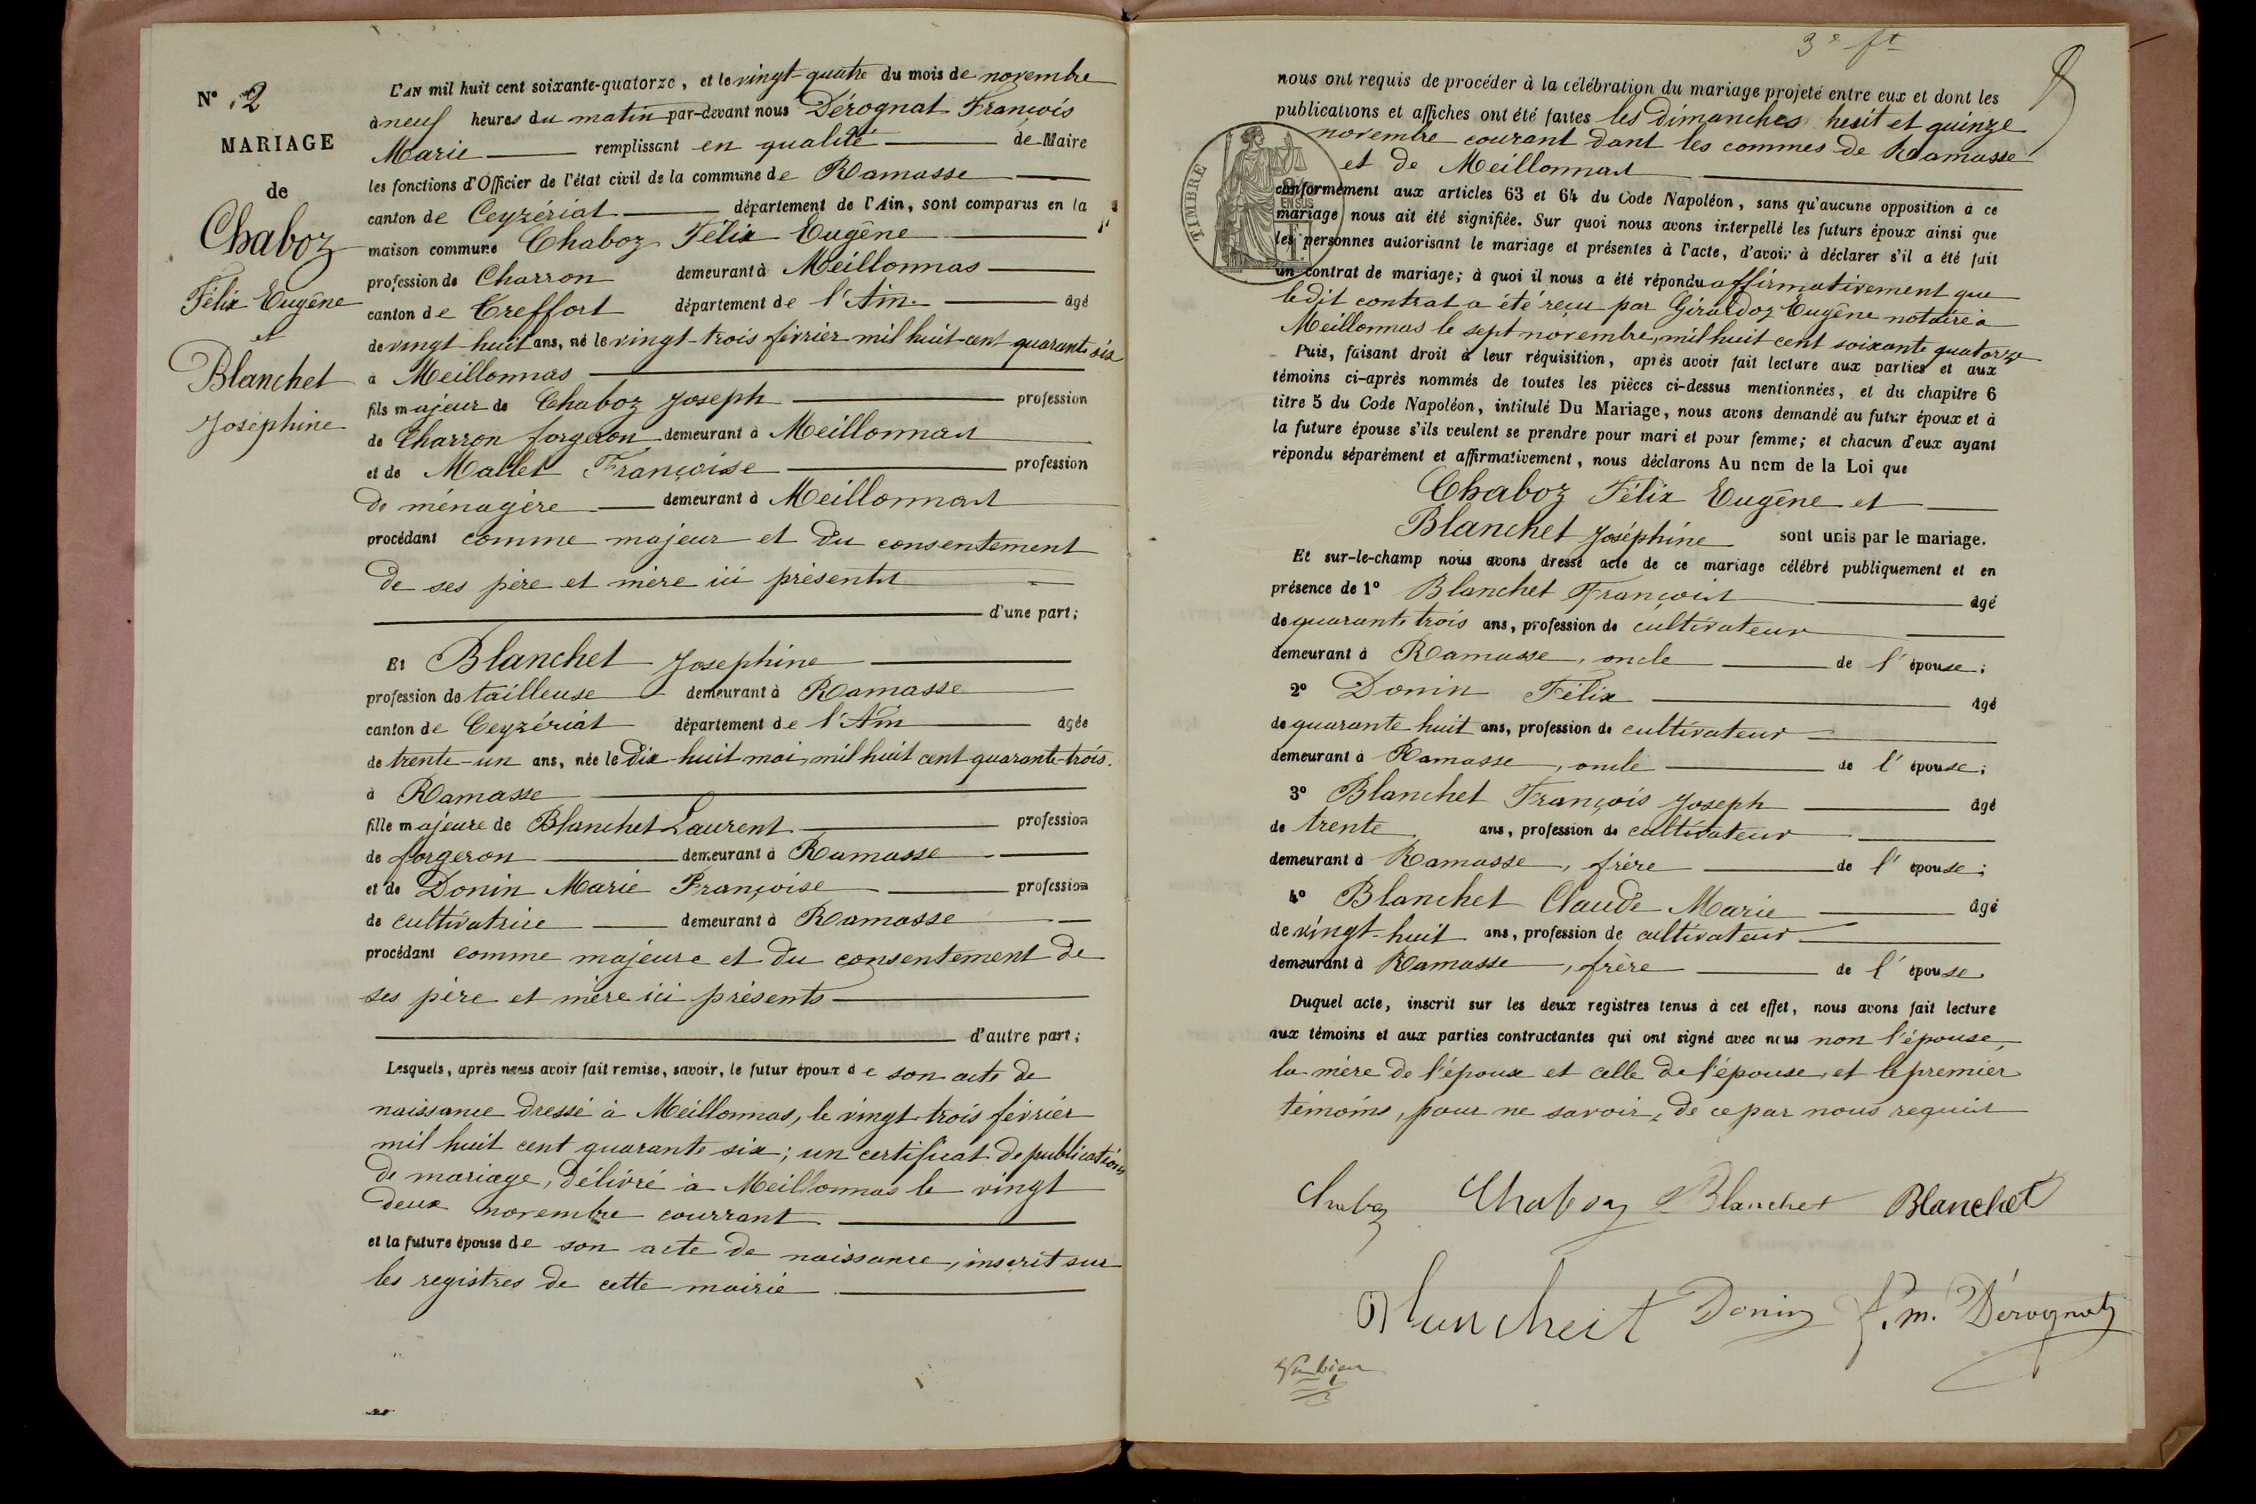 N° 2
MARIAGE
de
Chaboz
Félix Eugène
et
Blanchet
Joséphine
L'AN mil huit cent soixante-quatorze, et le vingt-quatre du mois de novembre
à neuf heures du matin par-devant nous Dérognat François
Marie remplissant en qualité de Maire
les fonctions d'Officier de l'état civil de la commune de Ramasse
canton de Ceyzériat département de l'Ain, sont comparus en la
maison commune Chaboz Félix Eugène
profession de Charron demeurant à Meillonnas
canton de Treffort département de l'Ain. âgé
de vingt-huit ans, né le vingt-trois février mil huit cent quarante six
à Meillonnas
fils majeur de Chaboz Joseph profession
de Charron forgeron demeurant à Meillonnas
et de Mallet Françoise profession
de ménagère demeurant à Meillonnas
procédant comme majeur et du consentement
de ses père et mère ici présents
d'une part;
Et Blanchet Josephine
profession de tailleuse demeurant à Ramasse
canton de Ceyzériat département de l'Ain âgée
de trente-un ans, née le dix-huit mai, mil huit cent quarante-trois.
à Ramasse
fille majeure de Blanchet Laurent profession
de forgeron demeurant à Ramasse
et de Donin Marie Françoise profession
de cultivatrice demeurant à Ramasse
procédant comme majeure et du consentement de
ses père et mère ici présents
d'autre part;
Lesquels, après nous avoir fait remise, savoir, le futur époux de son acte de
naissance dressé à Meillonnas, le vingt trois février
mil huit cent quarante six; un certificat de publication
de mariage, délivré à Meillonnas le vingt
deux novembre courrant
et la future épouse de son acte de naissance, inscrit sur
les registres de cette mairie
3e ft
nous ont requis de procéder à la célébration du mariage projeté entre eux et dont les
publications et affiches ont été faites les dimanches huit et quinze
novembre courant dant les commes de Ramasse
et de Meillonnas
TIMBRE
conformément aux articles 63 et 64 du Code Napoléon, sans qu'aucune opposition à ce
mariage nous ait été signifiée. Sur quoi nous avons interpellé les futurs époux ainsi que
les personnes autorisant le mariage et présentes à l'acte, d'avoir à déclarer s'il a été fait
un contrat de mariage; à quoi il nous a été répondu affirmativement que
ledit contrat a été reçu par Giraldoz Eugène notaire à
Meillonnas le sept novembre, mil huit cent soixante quatorze
Puis, faisant droit à leur réquisition, après avoir fait lecture aux parties et aux
témoins ci-après nommés de toutes les pièces ci-dessus mentionnées, et du chapitre 6
titre 5 du Code Napoléon, intitulé Du Mariage, nous avons demandé au futur époux et à
la future épouse s'ils veulent se prendre pour mari et pour femme; et chacun d'eux ayant
répondu séparément et affirmativement, nous déclarons Au nom de la Loi que
Chaboz Félix Eugène et
Blanchet Joséphine sont unis par le mariage.
Et sur-le-champ nous avons dressé acte de ce mariage célébré publiquement et en
présence de 1° Blanchet François âgé
de quarante trois ans, profession de cultivateur
demeurant à Ramasse, oncle de l'épouse;
2° Donin Félix âgé
de quarante huit ans, profession de cultivateur
demeurant à Ramasse, oncle de l'épouse;
3° Blanchet François Joseph âgé
de trente ans, profession de cultivateur
demeurant à Ramasse, frère de l'épouse;
4° Blanchet Claude Marie âgé
de vingt-huit ans, profession de cultivateur
demeurant à Ramasse, frère de l'épouse.
Duquel acte, inscrit sur les deux registres tenus à cet effet, nous avons fait lecture
aux témoins et aux parties contractantes qui ont signé avec nous non l'épouse,
la mère de l'époux et celle de l'épouse, et le premier
témoins, pour ne savoir, de ce par nous requis
Chaboz Chaboz Blanchet Blanchet
Blancheit Donin f. m. Dérognat